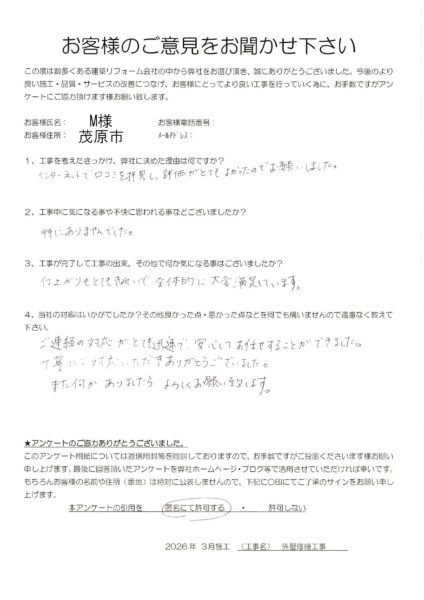 お客様のご意見をお聞かせ下さい
この度は数多くある建築リフォーム会社の中から弊社をお選び頂き、誠にありがとうございました。今後のより
良い施工・品質・サービスの改善につなげ、お客様にとってより良い工事を行っていく為に、お手数ですがアン
ケートにご協力頂けます様お願い致します。
お客様氏名： M様 お客様電話番号：
お客様住所： 茂原市 ﾒｰﾙｱﾄﾞﾚｽ：
1、工事を考えたきっかけ、弊社に決めた理由は何ですか？
インターネットで口コミを拝見し、評価がとてもよかったのでお願いしました。
2、工事中に気になる事や不快に思われる事などございましたか？
特にありませんでした。
3、工事が完了して工事の出来、その他で何か気になる事はございましたか？
仕上がりもとてもきれいで全体的に大変満足しています。
4、当社の対応はいかがでしたか？その他良かった点・悪かった点などを何でも構いませんので遠慮なく教えて
下さい。
ご連絡の対応がとても迅速で、安心してお任せすることができました。
丁寧にご対応いただきありがとうございました。
また何かありましたらよろしくお願い致します。
★アンケートのご協力ありがとうございました。
このアンケート用紙については返信用封筒を同封しておりますので、お手数ですがご投函くださいます様お願い
申し上げます。最後に回答頂いたアンケートを弊社ホームページ・ブログ等で活用させていただければ幸いです。
もちろんお客様の名前や住所（番地）は絶対に公表しませんので、下記に〇印にてご了承のサインをお願い申し
上げます。
本アンケートの引用を 匿名にて許可する ・ 許可しない
2026年 3月施工 （工事名） 外壁修繕工事